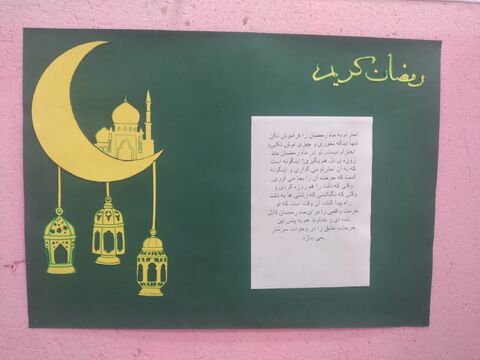 رمضان كريم
احترام به ماه رمضان را فراموش نکن
تنها اینکه نخوری و چیزی نوش نکنی،
احترام نیست. تو در ماه رمضان باید
روزه ی دل هم بگیری! اینگونه است
که به آن احترام می گذاری و اینگونه
است که حرمت آن را بجا می آوری.
وقتی که دلت را هم روزه کردی و
وقتی که نگذاشتی که زشتی ها به دلت
راه پیدا کنند، آن وقت است که تو
حرمت واقعی را برای ماه رمضان قائل
شده ای و خداوند هم به پاس این
حرمت، عشق را در وجودت سرشار
می سازد.